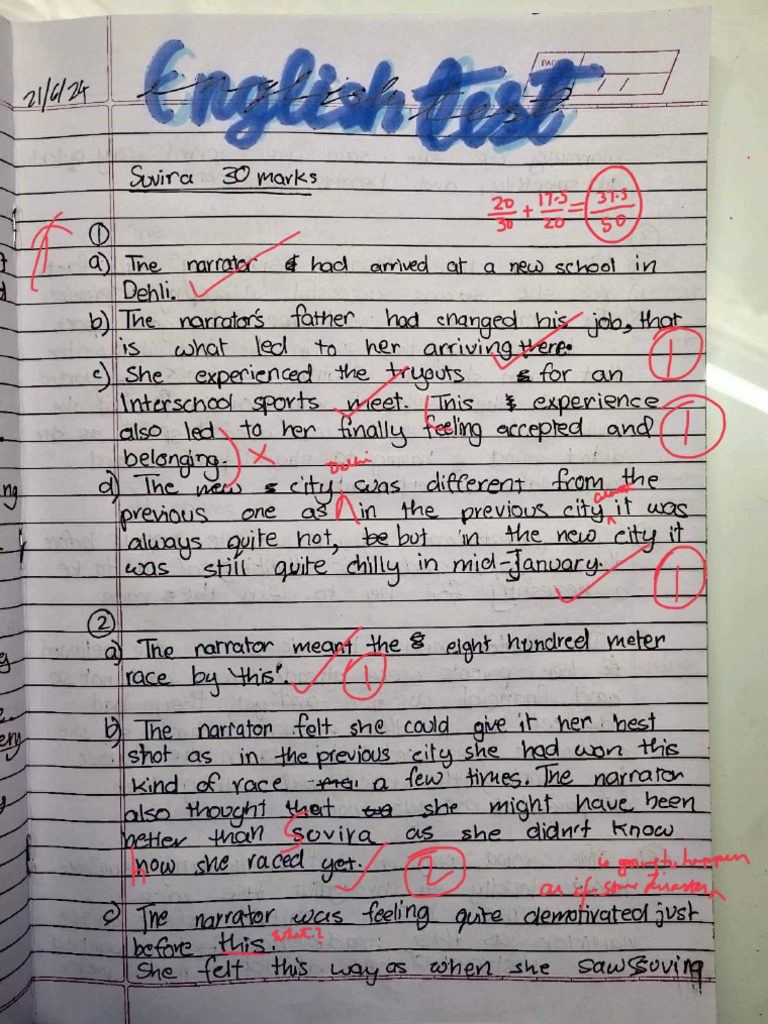 21/6/24
English test
PAGE
/ /
Suvira 30 marks
20/30 + 17.5/20 = 37.5/50
①
a) The narrator had arrived at a new school in
Dehli.
b) The narrator's father had changed his job, that
is what led to her arriving there.
1
c) She experienced the tryouts for an
Interschool sports meet. This experience
also led to her finally feeling accepted and
1
belonging.
Delhi
d) The new city was different from the
previous one as in the previous city it was
always quite hot, but in the new city it
was still quite chilly in mid-January.
1
②
a) The narrator meant the eight hundred meter
race by "this".
1
b) The narrator felt she could give it her best
shot as in the previous city she had won this
kind of race a few times. The narrator
also thought that she might have been
better than Suvira as she didn't know
how she raced yet.
2
is going to happen
as if some disaster
c) The narrator was feeling quite demotivated just
before this.
what?
She felt this way as when she saw Suvira
ng
ery